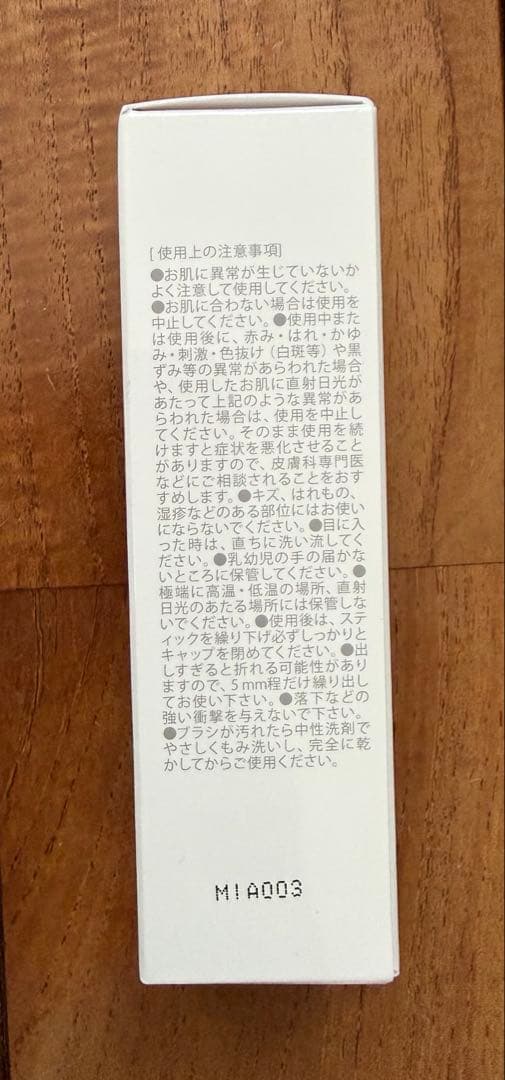 [ 使用上の注意事項]
●お肌に異常が生じていないか
よく注意して使用してください。
●お肌に合わない場合は使用を
中止してください。●使用中また
は使用後に、赤み・はれ・かゆ
み・刺激・色抜け(白斑等)や黒
ずみ等の異常があらわれた場合
や、使用したお肌に直射日光が
あたって上記のような異常があ
らわれた場合は、使用を中止し
てください。そのまま使用を続
けますと症状を悪化させること
がありますので、皮膚科専門医
などにご相談されることをおす
すめします。●キズ、はれもの、
湿疹などのある部位にはお使い
にならないでください。●目に入
った時は、直ちに洗い流してく
ださい。●乳幼児の手の届かな
いところに保管してください。●
極端に高温・低温の場所、直射
日光のあたる場所には保管しな
いでください。●使用後は、ステ
ィックを繰り下げ必ずしっかりと
キャップを閉めてください。●出
しすぎると折れる可能性があり
ますので、5mm程だけ繰り出し
てお使い下さい。●落下などの
強い衝撃を与えないで下さい。
●ブラシが汚れたら中性洗剤で
やさしくもみ洗いし、完全に乾
かしてからご使用ください。
MIA003